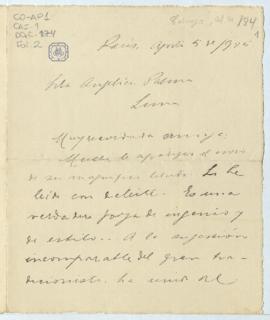 CO-AP1
CA: 1
DOC: 174
Fol: 2
174
París, 5 de
Srta Angélica Palma
Lima
Muy recordada amiga:
Mucho le agradezco el envío
de su Lo he
leído con deleite. Es una
verdadera joya de ingenio y
de estilo. A la sugestión
incomparable del gran tra-
dicionista ha unido